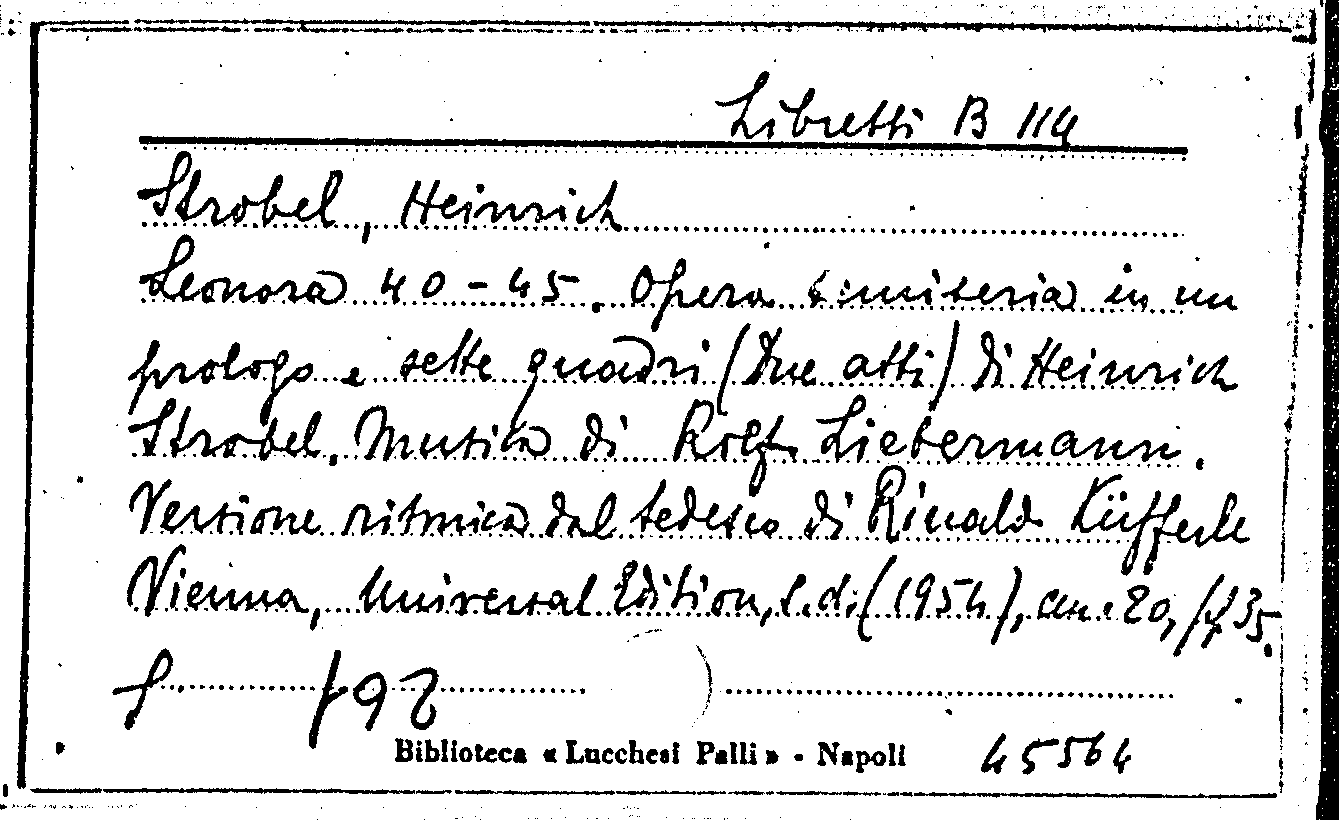 Libretti B 114
Strobel, Heinrich
Leonora 40-45. Opera semiseria in un
prologo e sette quadri (due atti) di Heinrich
Strobel. Musica di Rolf Liebermann.
Versione ritmica dal tedesco di Rinaldo Küfferle
Vienna, Universal Edition, s.d. (1954), cm. 20, pp. 35.
Biblioteca « Lucchesi Palli » - Napoli
45564